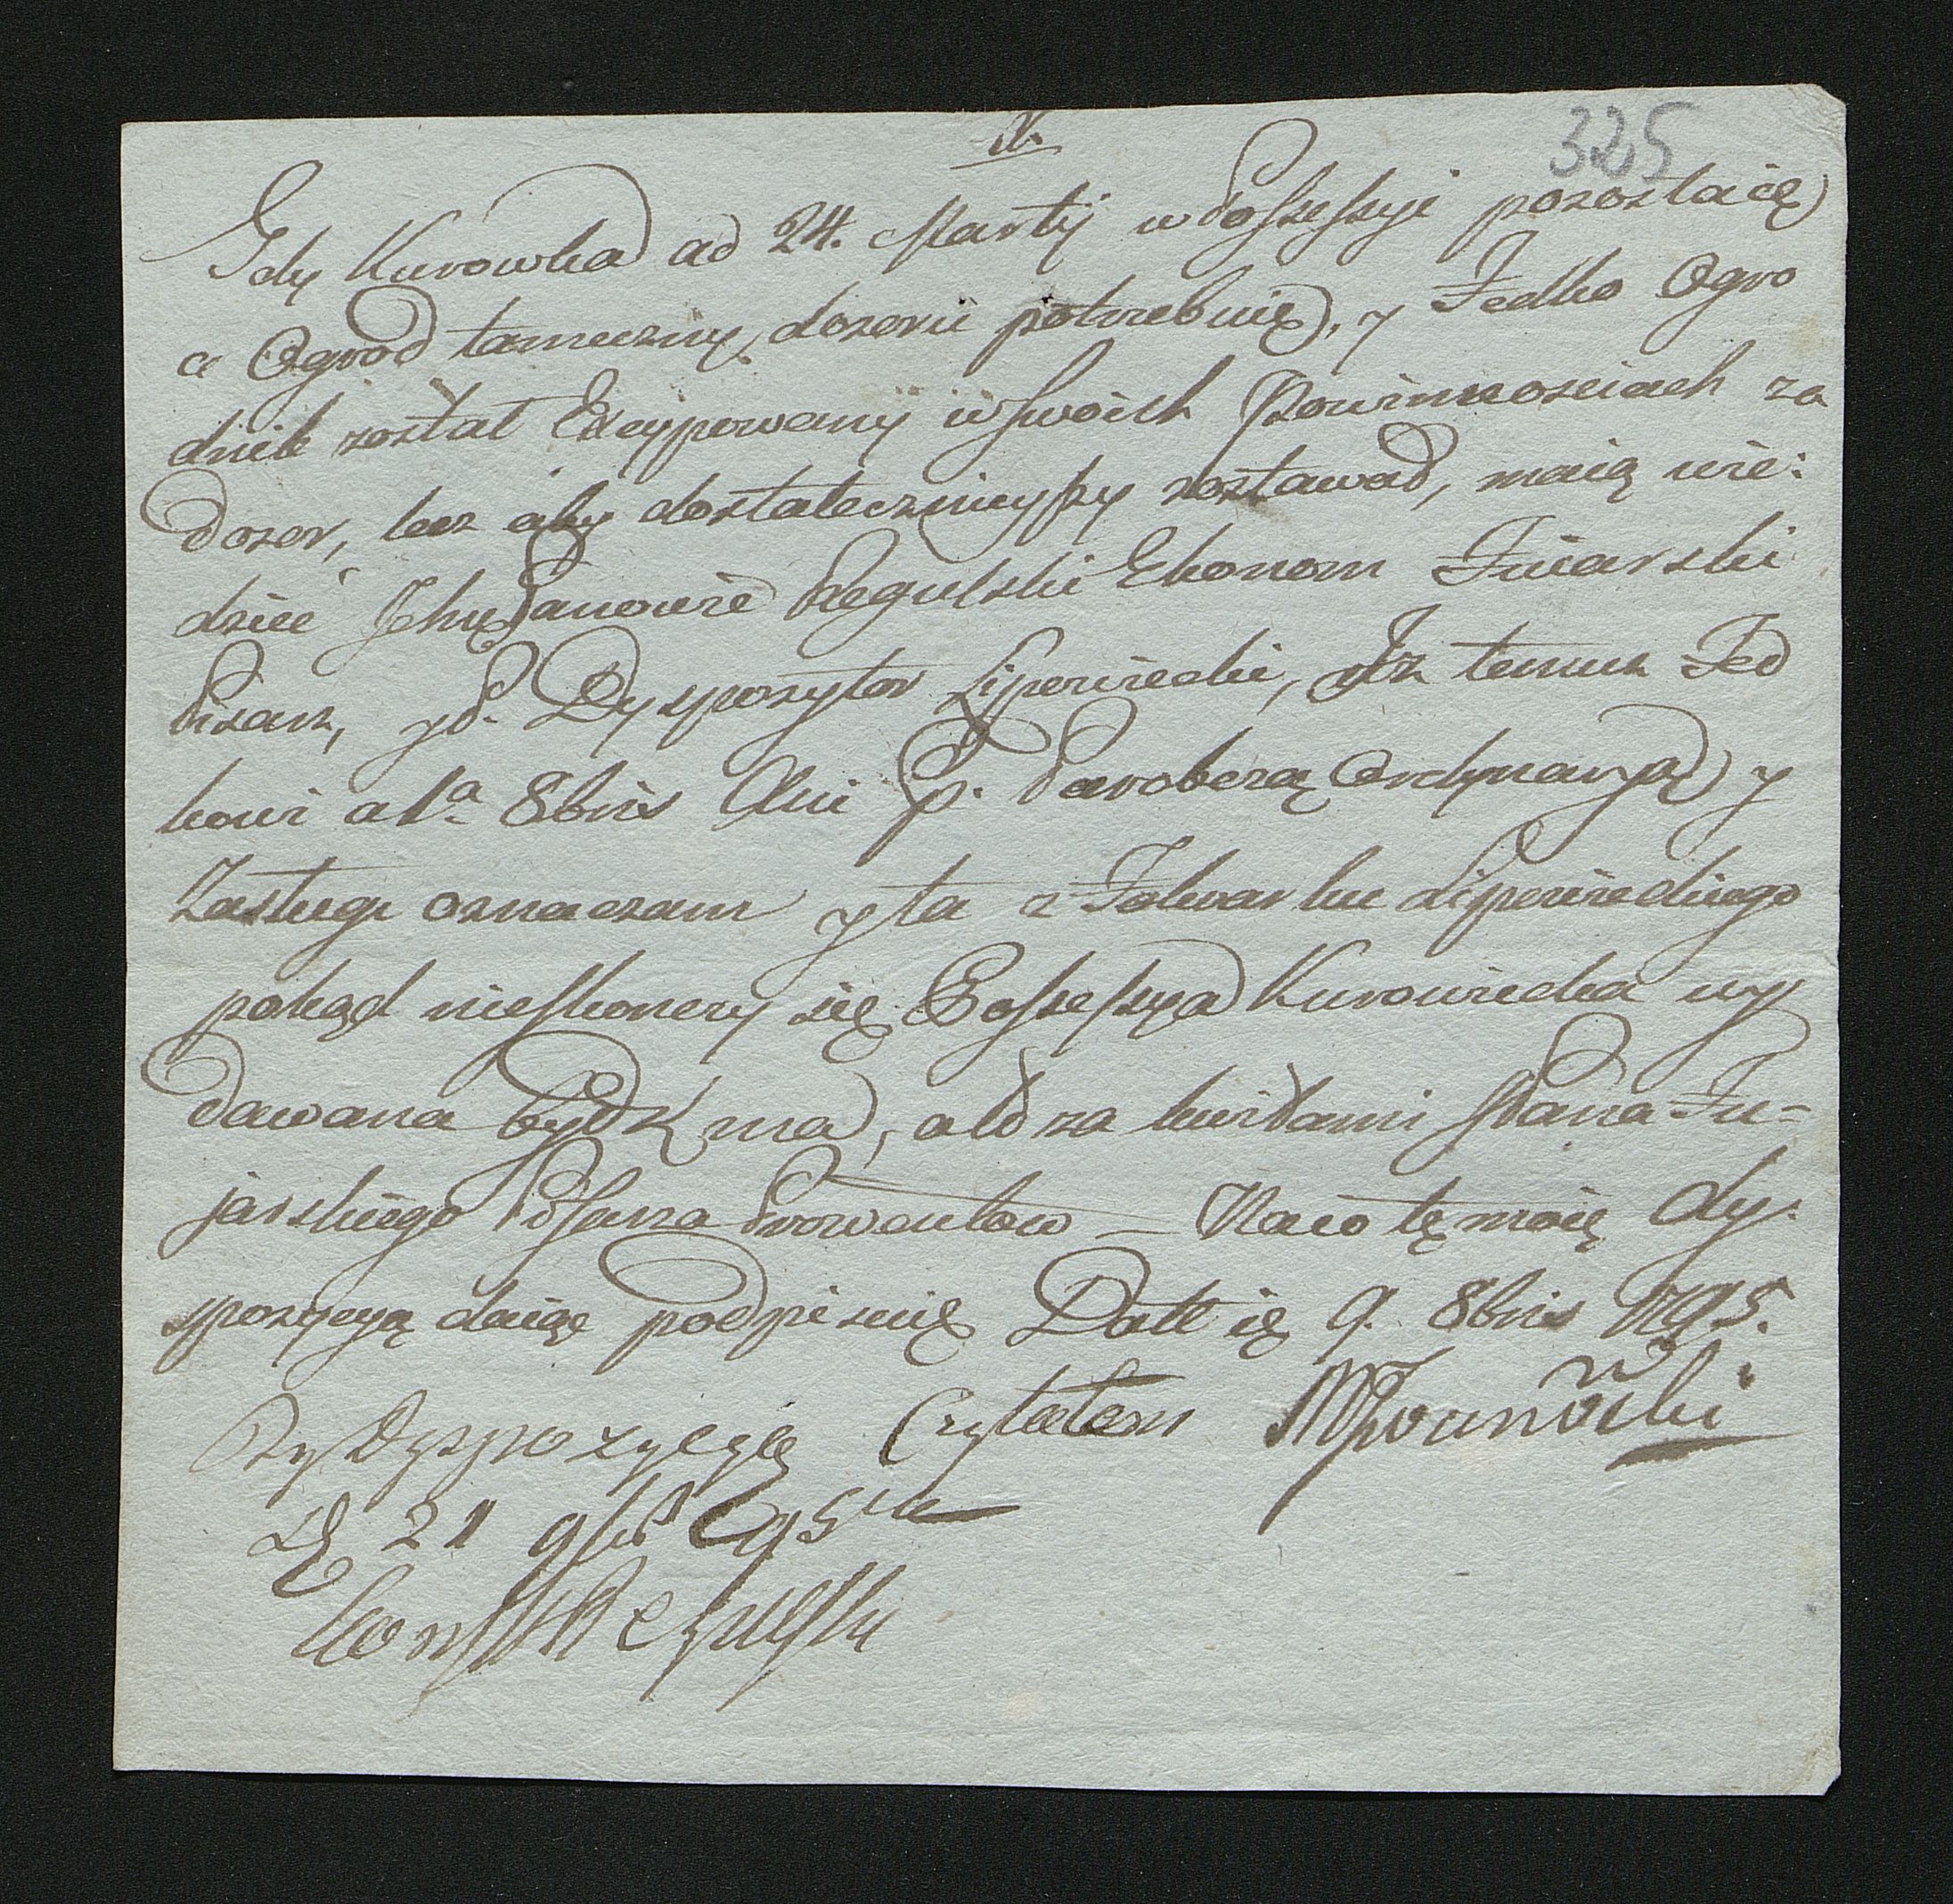 325
Gdy Kurowka ad 24. Martij w Possessyi pozostaie
a Ogrod tameczny dozoru potrzebuie, y Fedko Ogro
dnik został Excypowany w swoich Powinnosciach za
dozor, lecz aby dostatecznieyszy zostawał, maią wie:
dzieć Ichmć Panowie Regulski Ekonom Fuiarski
Pisarz, y P. Dyspozytor Lipowiecki, Iż temuż Fed
kowi a 1ª 8bris Ani p. Parobczą Ordynaryą y
Zasługi oznaczam y ta z Folwarku Lipowieckiego
pokąd nieskonczy się Possessya Kurowiecka wy
dawana bydź ma, a to za kwitami Pana Fu=
jarskiego Pisarza Prowentow – Na co tę moię Dy:
spozycyą daię podpisuię Datt ię 9. 8bris 1795.
Tę Dyspozycyę Czytałem
D 21 9bris 95
Const Regulski